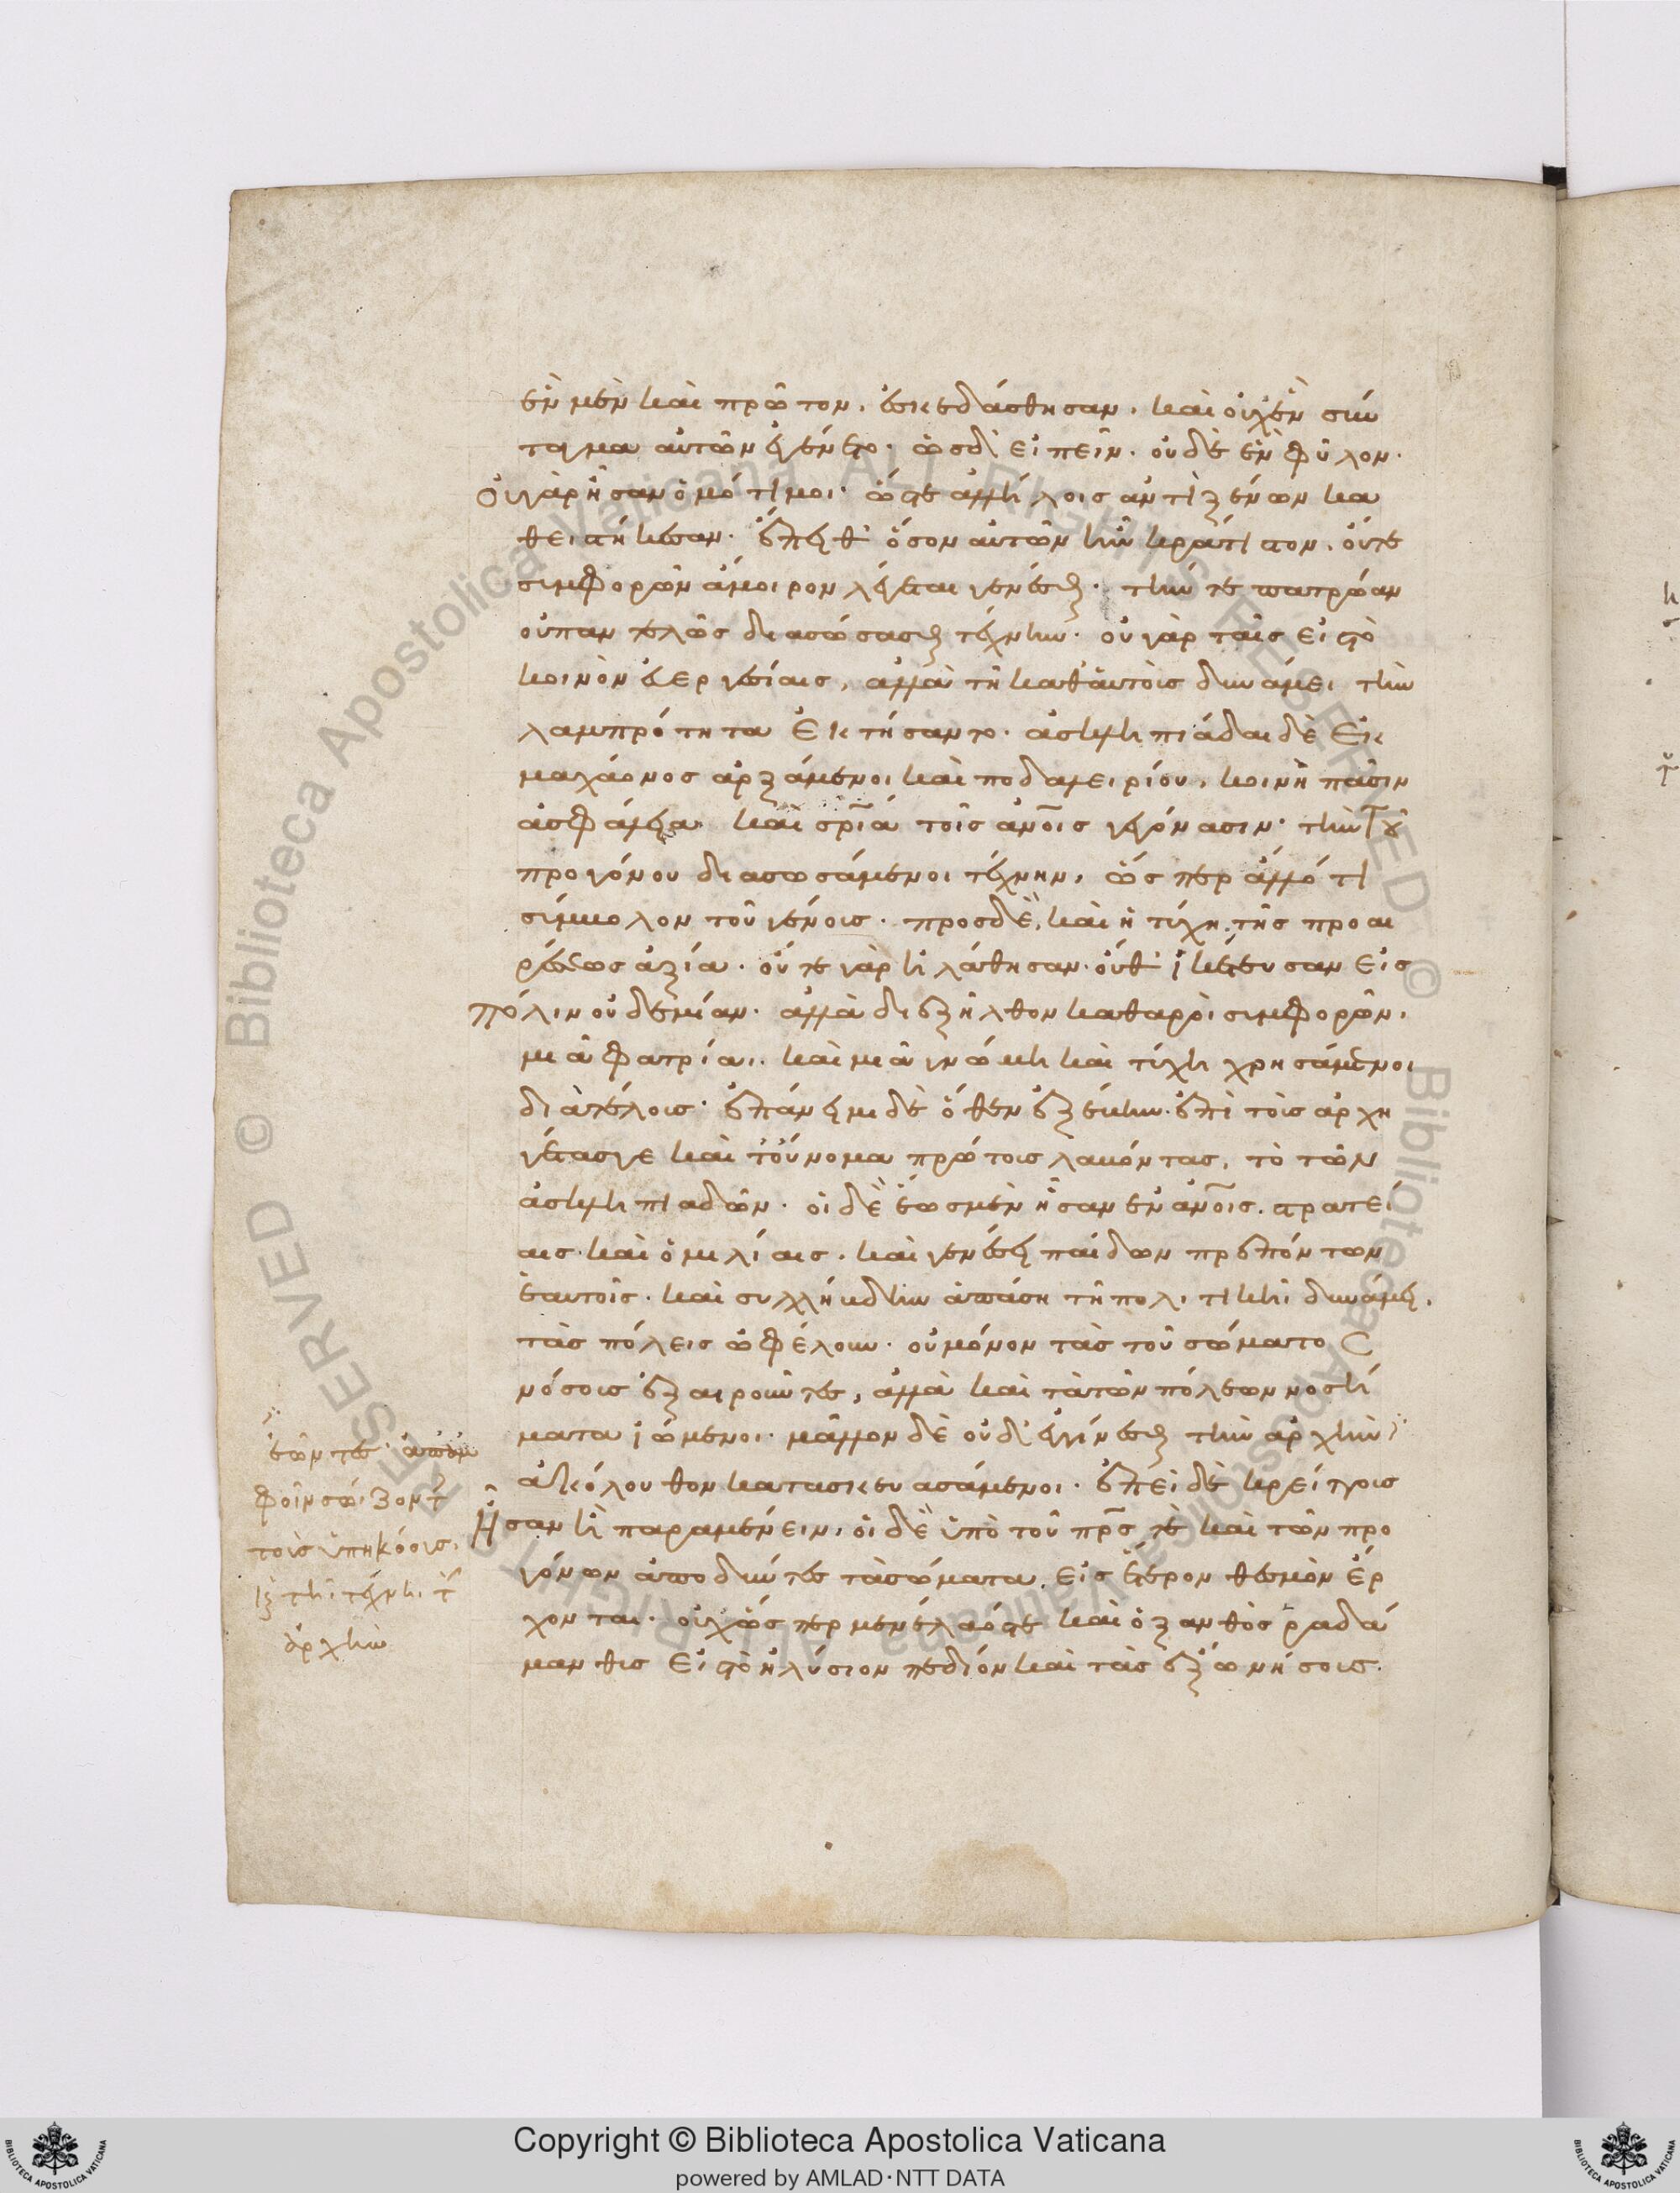 ἓν μὲν καὶ πρῶτον. ἐσκεδάσθησαν. καὶ οὐχ ἓν σύν
ταγμα αὐτῶν ἐγένετο. ὡς δ' εἰπεῖν. οὐδὲ ἓν φῦλον.
Οὐ γὰρ ἦσαν ὁμότιμοι. ὥστε ἀλλήλοις ἀντὶ ξένων κα
θειστήκεσαν. ἔπειθ' ὅσον αὐτῶν ἦν κράτιστον. οὔτε
συμφορῶν ἄμοιρον λέγεται γενέσθαι. τήν τε πατρῴαν
οὐ παντελῶς διασώσασθαι τέχνην. οὐ γὰρ ταῖς εἰς τὸ
κοινὸν εὐεργεσίαις, ἀλλὰ τῇ καθ' αὑτοὺς δυνάμει τὴν
λαμπρότητα ἐκτήσαντο. ἀσκληπιάδαι δὲ ἐκ
μαχάονος ἀρξάμενοι καὶ ποδαλειρίου, κοινῇ πᾶσιν
ἀσφάλεια καὶ σρία τοῖς ἀνοις γεγόνασιν. τὴν τοῦ
προγόνου διασωσάμενοι τέχνην, ὥσπερ ἄλλό τι
σύμβολον τοῦ γένους. προσδὲ, καὶ ἡ τύχη. τῆς προαι
ρέσεως ἀξία. οὔτε γὰρ ἠλάθησαν. οὔθ' ἱκέτευσαν εἰς
πόλιν οὐδεμίαν. ἀλλὰ διεξῆλθον καθαροὶ συμφορῶν.
μιᾷ φατρίᾳ. καὶ μιᾷ γνώμῃ καὶ τύχῃ χρησάμενοι
διὰ τέλους. ἐπάνειμι δὲ ὅθεν ἐξέβην. ἐπὶ τοὺς ἀρχη
γέτας γε καὶ τοὔνομα πρώτους λαβόντας, τὸ τῶν
ἀσκληπιαδῶν. οἱ δὲ ἕως μὲν ἦσαν ἐν ἀνοις. στρατεί
αις καὶ ὁμιλίαις. καὶ γενέσει παίδων πρεπόντων
ἑαυτοῖς. καὶ συλλήβδην ἁπάσῃ τῇ πολιτικῇ δυνάμει.
τὰς πόλεις ὠφέλουν. οὐ μόνον τὰς τοῦ σώματος
νόσους ἐξαιροῦντες, ἀλλὰ καὶ τὰ τῶν πόλεων νοσή
ματα ἰώμενοι. μᾶλλον δὲ οὐδ' ἐγγίνεσθαι τὴν ἀρχὴν
ἀκόλουθον κατασκευασάμενοι. ἐπεὶ δὲ κρείττους
Ἦσαν ἢ παραμένειν, οἱ δὲ ὑπὸ τοῦ πρς τε καὶ τῶν προ
γόνων ἀποδύντες τὰ σώματα. εἰς ἕτερον θεσμὸν ἔρ
χονται. οὐχ ὥσπερ μενέλαός τε καὶ ὁ ξανθὸς ῥαδά
μανθις εἰς τὸ ἠλύσιον πεδίον καὶ τὰς ἐξ ὦ νήσους.
τοῖς ὑπηκόοις.
τῇ τέχνῃ
ἀρχὴν
Copyright © Biblioteca Apostolica Vaticana
powered by AMLAD·NTT DATA